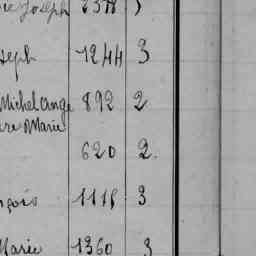 Joseph 2378 3
seph 1244 3
Michel Ange 892 2
re Marie
620 2.
nçois 1118 3
Marie 1360 3